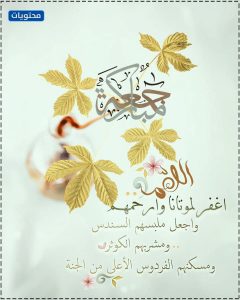 محتويات
جمعة مباركة
اللهم..
اغفر لموتانا وارحمهم
واجعل ملبسهم السندس
ومشربهم الكوثر..
ومسكنهم الفردوس الأعلى من الجنة